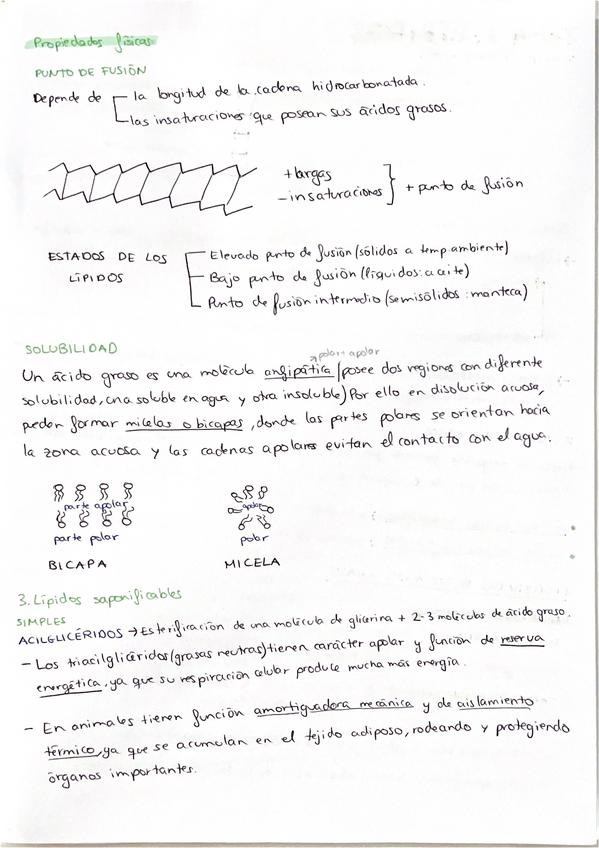 Propiedades físicas
PUNTO DE FUSIÓN
Depende de la longitud de la cadena hidrocarbonatada.
las insaturaciones que posean sus ácidos grasos.
+ largas
- insaturaciones } + punto de fusión
ESTADOS DE LOS LÍPIDOS
Elevado punto de fusión (sólidos a temp ambiente)
Bajo punto de fusión (líquidos: aceite)
Punto de fusión intermedio (semisólidos: manteca)
SOLUBILIDAD
→ polar + apolar
Un ácido graso es una molécula anfipática (posee dos regiones con diferente
solubilidad, una soluble en agua y otra insoluble) Por ello en disolución acuosa,
pueden formar micelas o bicapas, donde las partes polares se orientan hacia
la zona acuosa y las cadenas apolares evitan el contacto con el agua.
parte apolar
parte polar
BICAPA
apolar
polar
MICELA
3. Lípidos saponificables
SIMPLES
ACILGLICÉRIDOS → Esterificación de una molécula de glicerina + 2-3 moléculas de ácido graso.
- Los triacilglicéridos (grasas neutras) tienen carácter apolar y función de reserva
energética, ya que su respiración celular produce mucha más energía.
- En animales tienen función amortiguadora mecánica y de aislamiento
térmico, ya que se acumulan en el tejido adiposo, rodeando y protegiendo
órganos importantes.